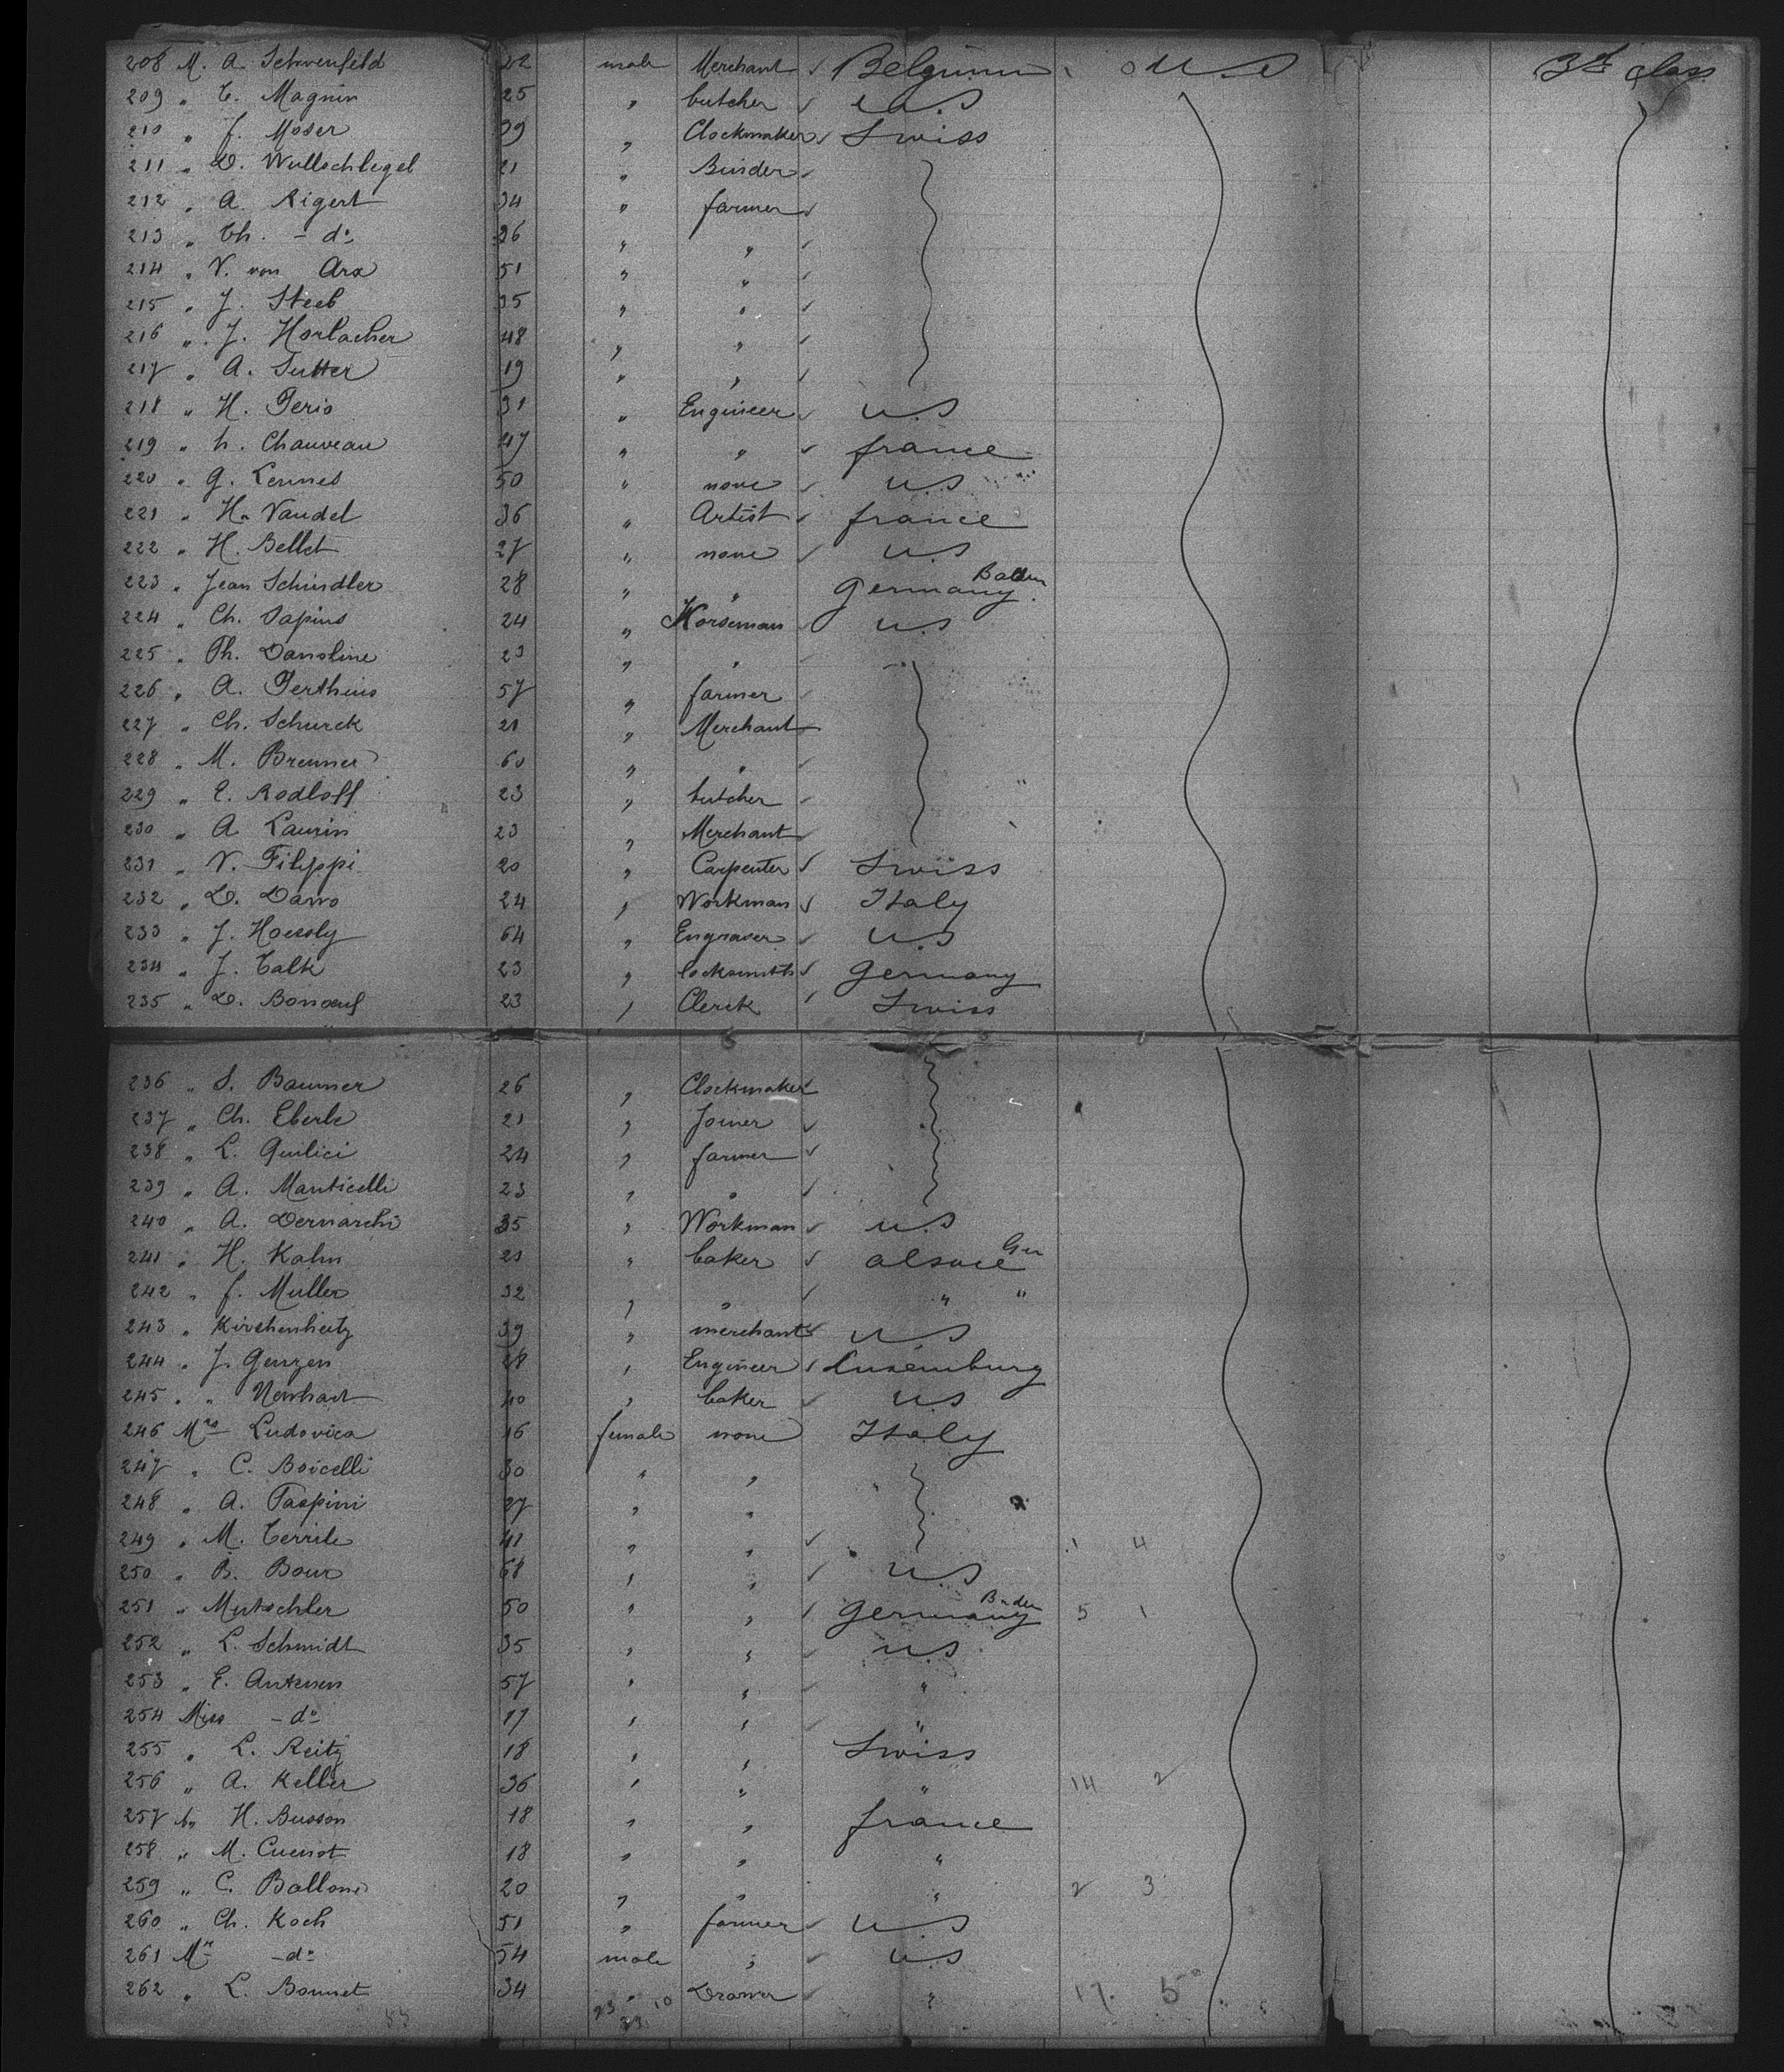 208 M. A. Schwenfeld 22 male Merchant ✓ Belgium U.S 3d class
209 " C. Magnin 25 " butcher ✓ U.S
210 " f. Moser 39 " Clockmaker ✓ Swiss
211 " D. Wullschlegel 21 " Binder ✓
212 " A. Rigert 34 " farmer ✓
213 " Th. - do 26 " " ✓
214 " V. von Arx 51 " " ✓
215 " J. Steeb 35 " " ✓
216 " J. Horlacher 48 " " ✓
217 " A. Sutter 19 " " ✓
218 " H. Peris 31 " Engineer ✓ U.S
219 " h. Chauveau 47 " " ✓ france
220 " G. Lennes 50 " none ✓ U.S
221 " H. Vaudel 36 " Artist ✓ france
222 " H. Bellet 27 " none ✓ U.S
223 " Jean Schindler 28 " " Germany Baden
224 " Ch. Sapins 24 " Horseman ✓ U.S
225 " Ph. Danoline 23 " " ✓
226 " A. Perthuis 57 " farmer ✓
227 " Ch. Schurck 21 " Merchant
228 " M. Brenner 60 " " ✓
229 " E. Rodloff 23 " butcher ✓
230 " A. Laurin 23 " Merchant ✓
231 " V. Filippi 20 " Carpenter ✓ Swiss
232 " D. Darro 24 " Workman ✓ Italy
233 " J. Hoessly 64 " Engraver ✓ U.S
234 " J. Talk 23 " locksmith ✓ Germany
235 " D. Bonoeuf 23 " Clerck ✓ Swiss
236 " S. Baumer 26 " Clockmaker ✓
237 " Ch. Eberle 21 " Joiner ✓
238 " L. Quilici 24 " farmer ✓
239 " A. Manticelli 23 " " ✓
240 " A. Dernarchi 35 " Workman ✓ U.S
241 " H. Kahn 21 " baker ✓ alsace Ger
242 " f. Muller 32 " " ✓ " "
243 " Kirchenheitz 39 " merchant ✓ U.S
244 " J. Genzen 28 " Engineer ✓ Luxemburg
245 " " Newhart 40 " baker ✓ U.S
246 Mrs Ludovica 16 female none Italy
247 " C. Boicelli 30 " "
248 " A. Taspini 27 " "
249 " M. Terrile 41 " " ✓ 1 4
250 " B. Bour 68 " " ✓ U.S
251 " Mutschler 50 " " ✓ Germany Baden 5 1
252 " L. Schmidt 35 " " ✓ U.S
253 " E. Antenen 57 " " ✓ "
254 Miss - do 17 " " ✓ "
255 " L. Reitz 18 " " Swiss
256 " A. Keller 36 " " " 14 2
257 " H. Busson 18 " " france
258 " M. Cuenot 18 " " "
259 " C. Balloni 20 " " " 2 3
260 " Ch. Koch 51 " farmer ✓ U.S
261 Mr - do 54 male " ✓ U.S
262 " L. Bonnet 34 " Drawer ✓ " 17 5